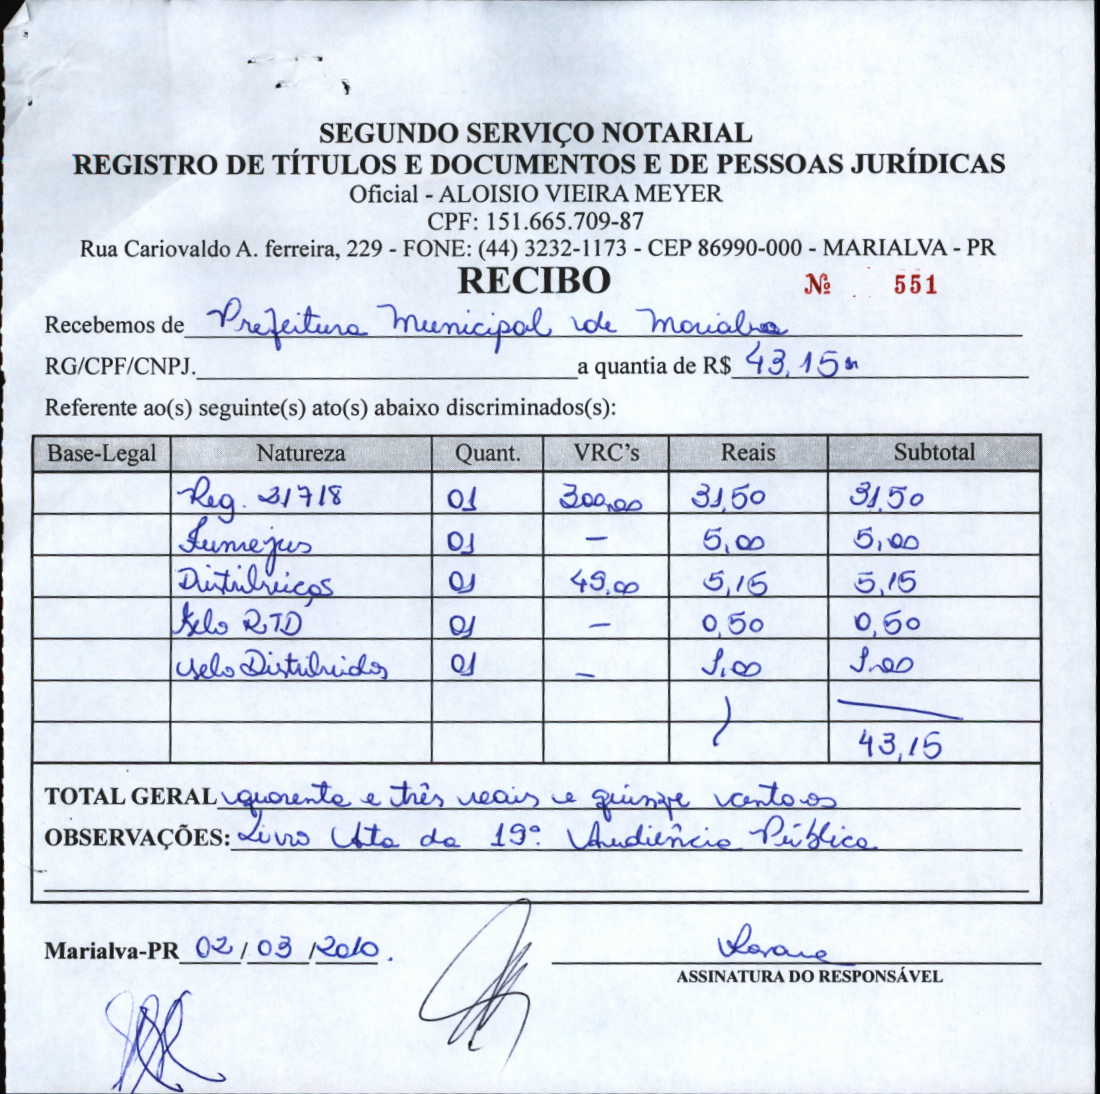 SEGUNDO SERVIÇO NOTARIAL
REGISTRO DE TÍTULOS E DOCUMENTOS E DE PESSOAS JURÍDICAS
Oficial - ALOISIO VIEIRA MEYER
CPF: 151.665.709-87
Rua Cariovaldo A. ferreira, 229 - FONE: (44) 3232-1173 - CEP 86990-000 - MARIALVA - PR
RECIBO Nº 551
Recebemos de Prefeitura Municipal de Marialva
RG/CPF/CNPJ. a quantia de R$ 43,15
Referente ao(s) seguinte(s) ato(s) abaixo discriminados(s):
Base-Legal Natureza Quant. VRC's Reais Subtotal
Reg. 31718 01 300,00 31,50 31,50
Funrejus 01 - 5,00 5,00
Distribuição 01 49,00 5,15 5,15
Selo RTD 01 - 0,50 0,50
Selo Distribuidor 01 - 1,00 1,00
43,15
TOTAL GERAL quarenta e três reais e quinze centavos
OBSERVAÇÕES: Livro Ata da 19ª Audiência Pública
Marialva-PR 02/03/2010.
ASSINATURA DO RESPONSÁVEL